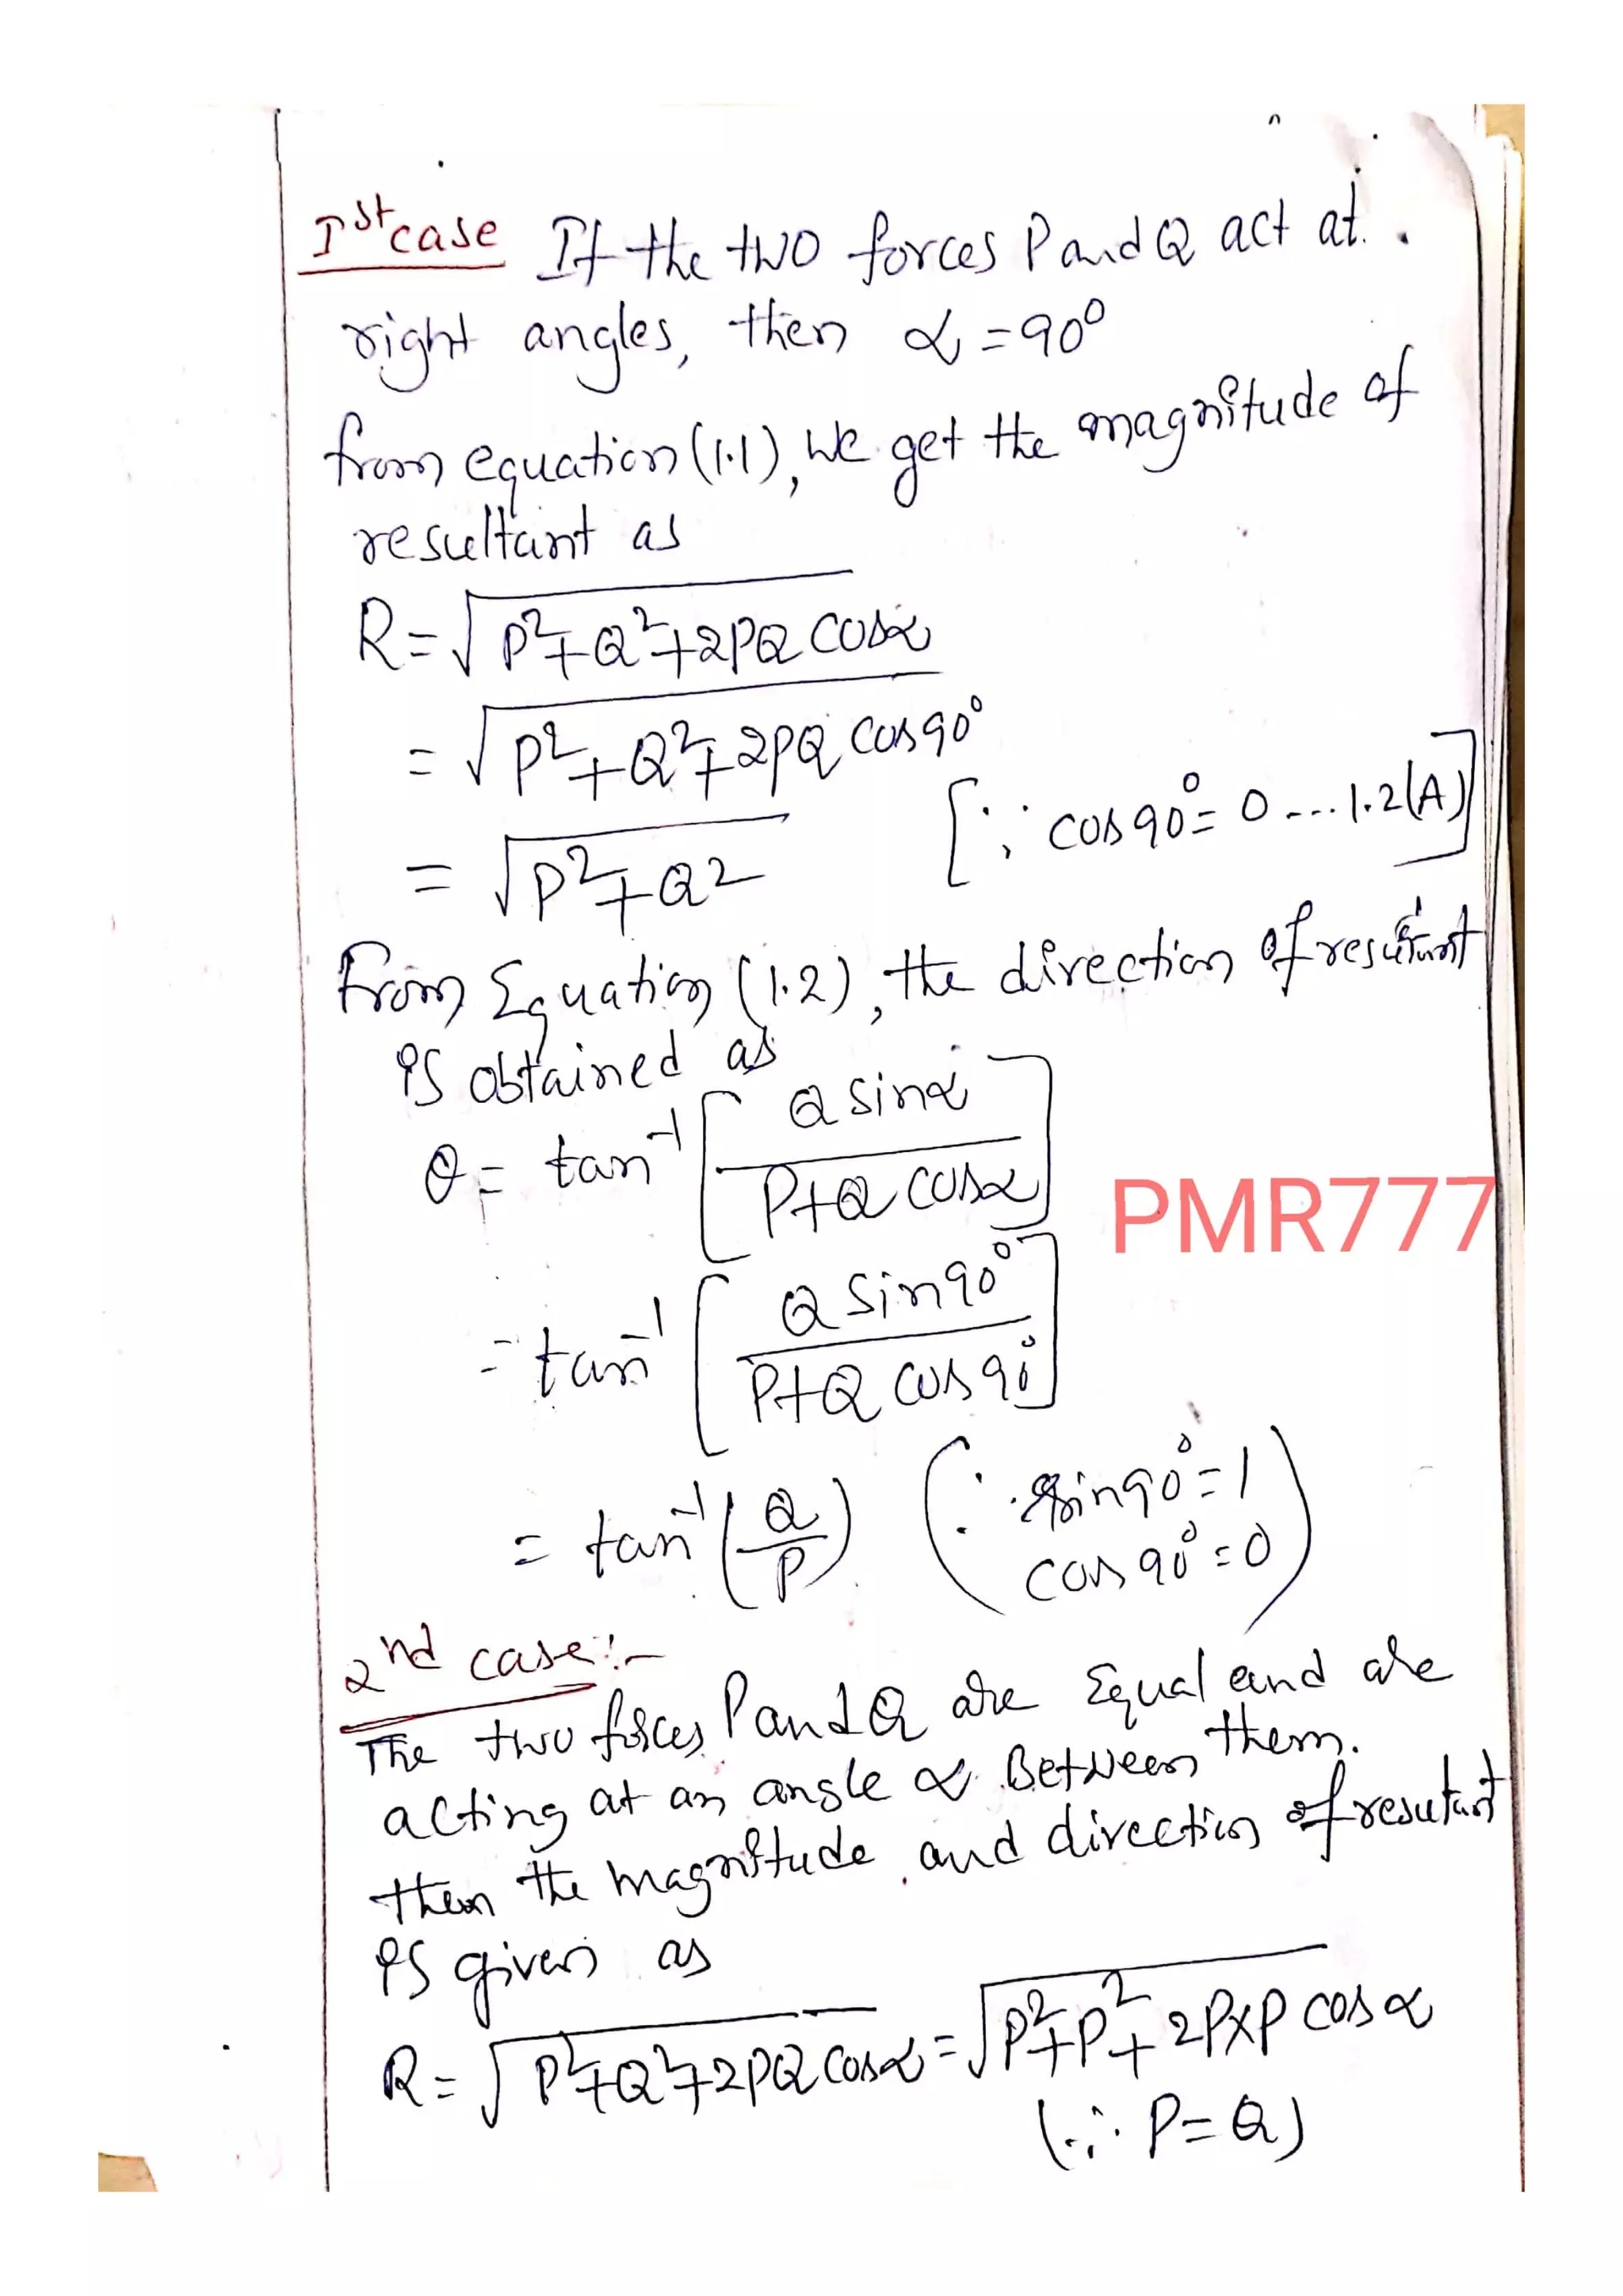 Ist case If the two forces P and Q act at
right angles, then α = 90°
from equation (1.1), we get the magnitude of
resultant as
R = √P²+Q²+2PQ cosα
= √P²+Q²+2PQ cos90°
= √P²+Q2 [∵ cos90° = 0 ... 1.2(A)]
From Equation (1.2), the direction of resultant
is obtained as
θ = tan⁻¹ [Q sinα / P+Q cosα]
PMR777
= tan⁻¹ [Q sin90° / P+Q cos90°]
= tan⁻¹ (Q/P) (∵ sin90° = 1
cos90° = 0)
2nd case:-
The two forces P and Q are Equal and are
acting at an angle α Between them.
then the magnitude and direction of resutant
is given as
R = √P²+Q²+2PQ cosα = √P²+P²+2P×P cosα
(∵ P = Q)